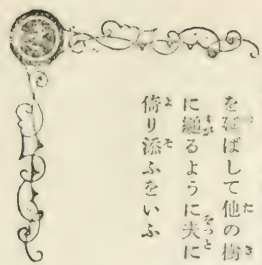 を延ばして他の樹
に縋るように夫に
倚り添ふをいふ